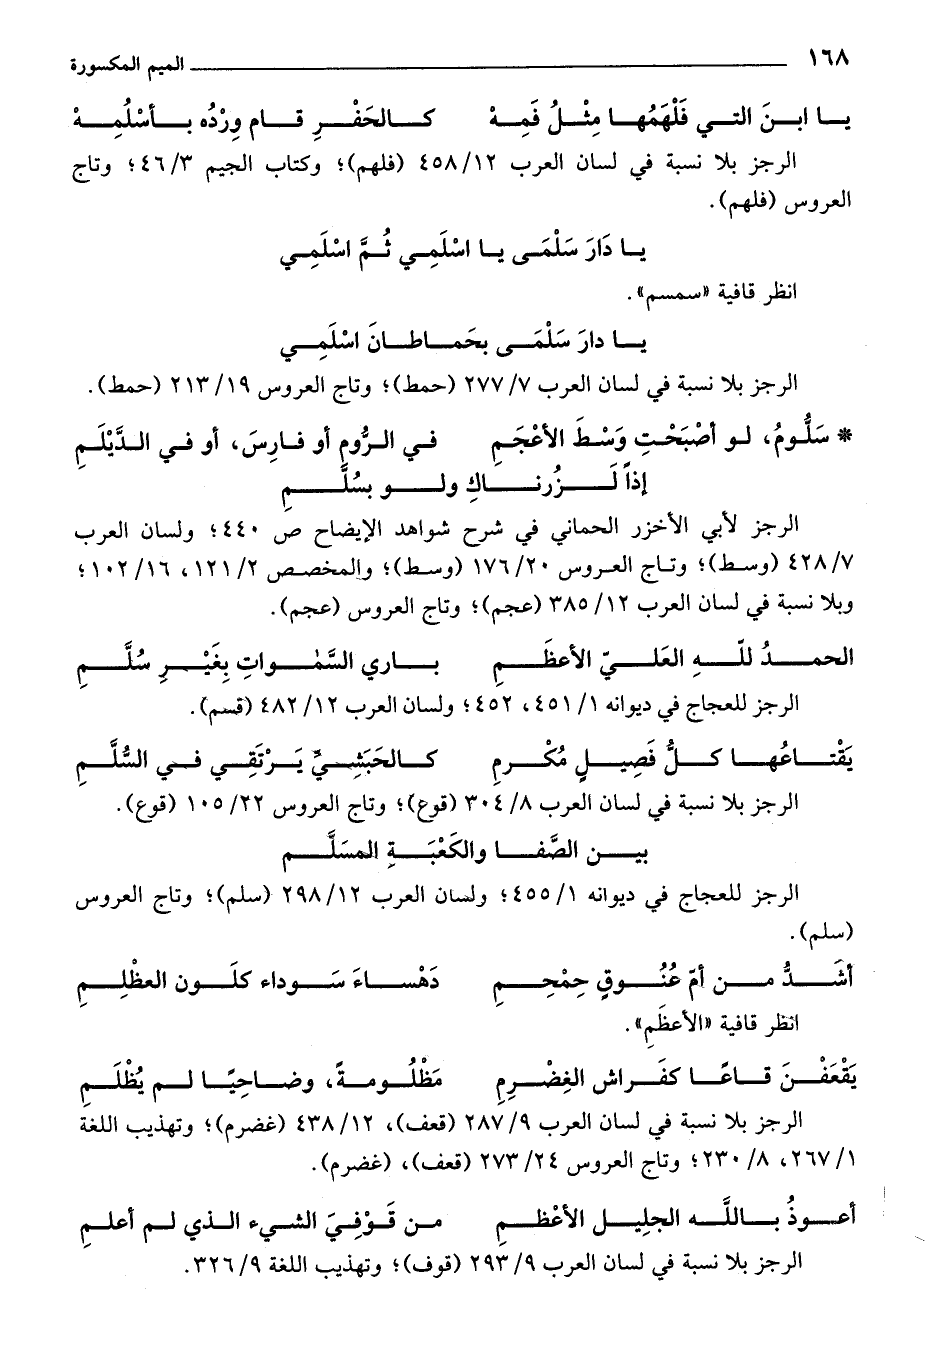 ١٦٨ الميم المكسورة
يا ابنَ التي فَلْهَمُها مِثْلُ فَمِهْ كالحَفْرِ قام وِرْدُه بأسْلُمِهْ
الرجز بلا نسبة في لسان العرب ٤٥٨/١٢ (فلهم)؛ وكتاب الجيم ٤٦/٣؛ وتاج
العروس (فلهم).
يا دَارَ سَلْمَى يا اسْلَمِي ثُمَّ اسْلَمِي
انظر قافية «سمسم».
يا دارَ سَلْمَى بحَماطانَ اسْلَمِي
الرجز بلا نسبة في لسان العرب ٢٧٧/٧ (حمط)؛ وتاج العروس ٢١٣/١٩ (حمط).
* سَلُّومُ، لو أصْبَحْتِ وَسْطَ الأعْجَمِ في الرُّومِ أو فارِسَ، أو في الدَّيْلَمِ
إذاً لَزُرناكِ ولو بسُلَّمِ
الرجز لأبي الأخزر الحماني في شرح شواهد الإيضاح ص ٤٤٠؛ ولسان العرب
٤٢٨/٧ (وسط)؛ وتاج العروس ١٧٦/٢٠ (وسط)؛ والمخصص ١٢١/٢، ١٠٢/١٦؛
وبلا نسبة في لسان العرب ٣٨٥/١٢ (عجم)؛ وتاج العروس (عجم).
الحمدُ للّهِ العَلِيّ الأعظَمِ باري السَّمٰواتِ بِغَيْرِ سُلَّمِ
الرجز للعجاج في ديوانه ٤٥١/١، ٤٥٢؛ ولسان العرب ٤٨٢/١٢ (قسم).
يَقْتاعُها كلُّ فَصِيلٍ مُكْرمِ كالحَبَشِيِّ يَرْتَقِي في السُّلَّمِ
الرجز بلا نسبة في لسان العرب ٣٠٤/٨ (قوع)؛ وتاج العروس ١٠٥/٢٢ (قوع).
بين الصَّفا والكَعْبَةِ المسَلَّمِ
الرجز للعجاج في ديوانه ٤٥٥/١؛ ولسان العرب ٢٩٨/١٢ (سلم)؛ وتاج العروس
(سلم).
أشَدُّ من أمّ عُنُوقٍ حِمْحِمِ دَهْساءَ سَوداء كلَون العظْلِمِ
انظر قافية «الأعظَمِ».
يَقْعَفْنَ قاعًا كفَراش الغِضْرِمِ مَظْلُومةً، وضاحِيًا لم يُظْلَمِ
الرجز بلا نسبة في لسان العرب ٢٨٧/٩ (قعف)، ٤٣٨/١٢ (غضرم)؛ وتهذيب اللغة
٢٦٧/١، ٢٣٠/٨؛ وتاج العروس ٢٧٣/٢٤ (قعف)، (غضرم).
أعوذُ باللَّه الجلِيل الأعْظمِ من قَوْفِيَ الشيء الذي لم أعلمِ
الرجز بلا نسبة في لسان العرب ٢٩٣/٩ (قوف)؛ وتهذيب اللغة ٣٢٦/٩.